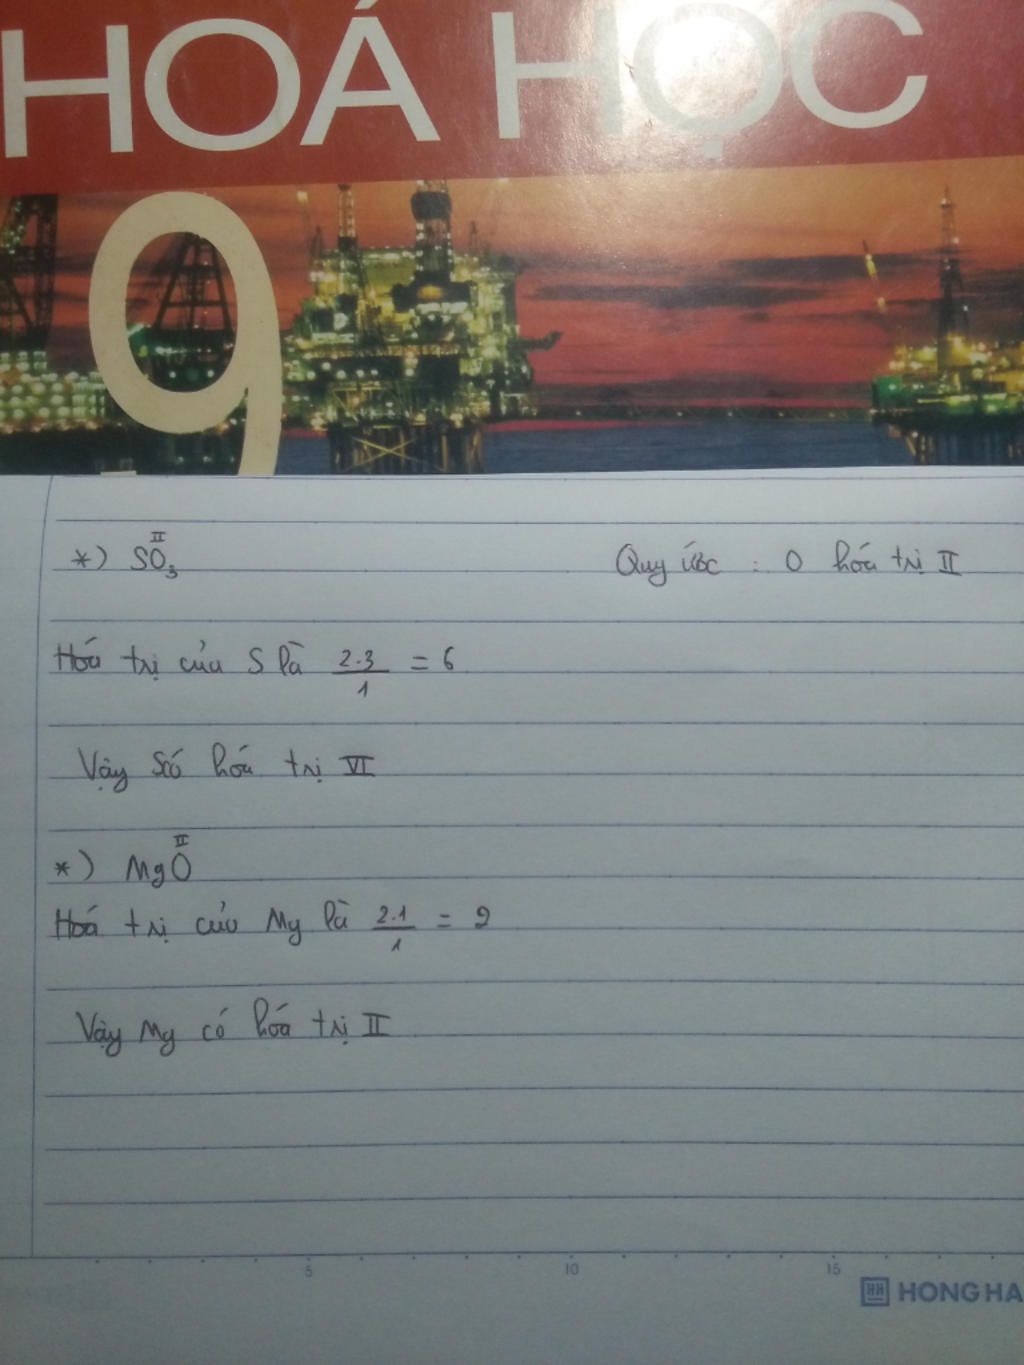 HOÁ HỌC
9
*) SO₃ II Quy ước : O hóa trị II
Hóa trị của S là 2.3/1 = 6
Vậy S có hóa trị VI
*) MgO II
Hoá trị của Mg là 2.1/1 = 2
Vậy Mg có hóa trị II
5 10 15
HH HONG HA